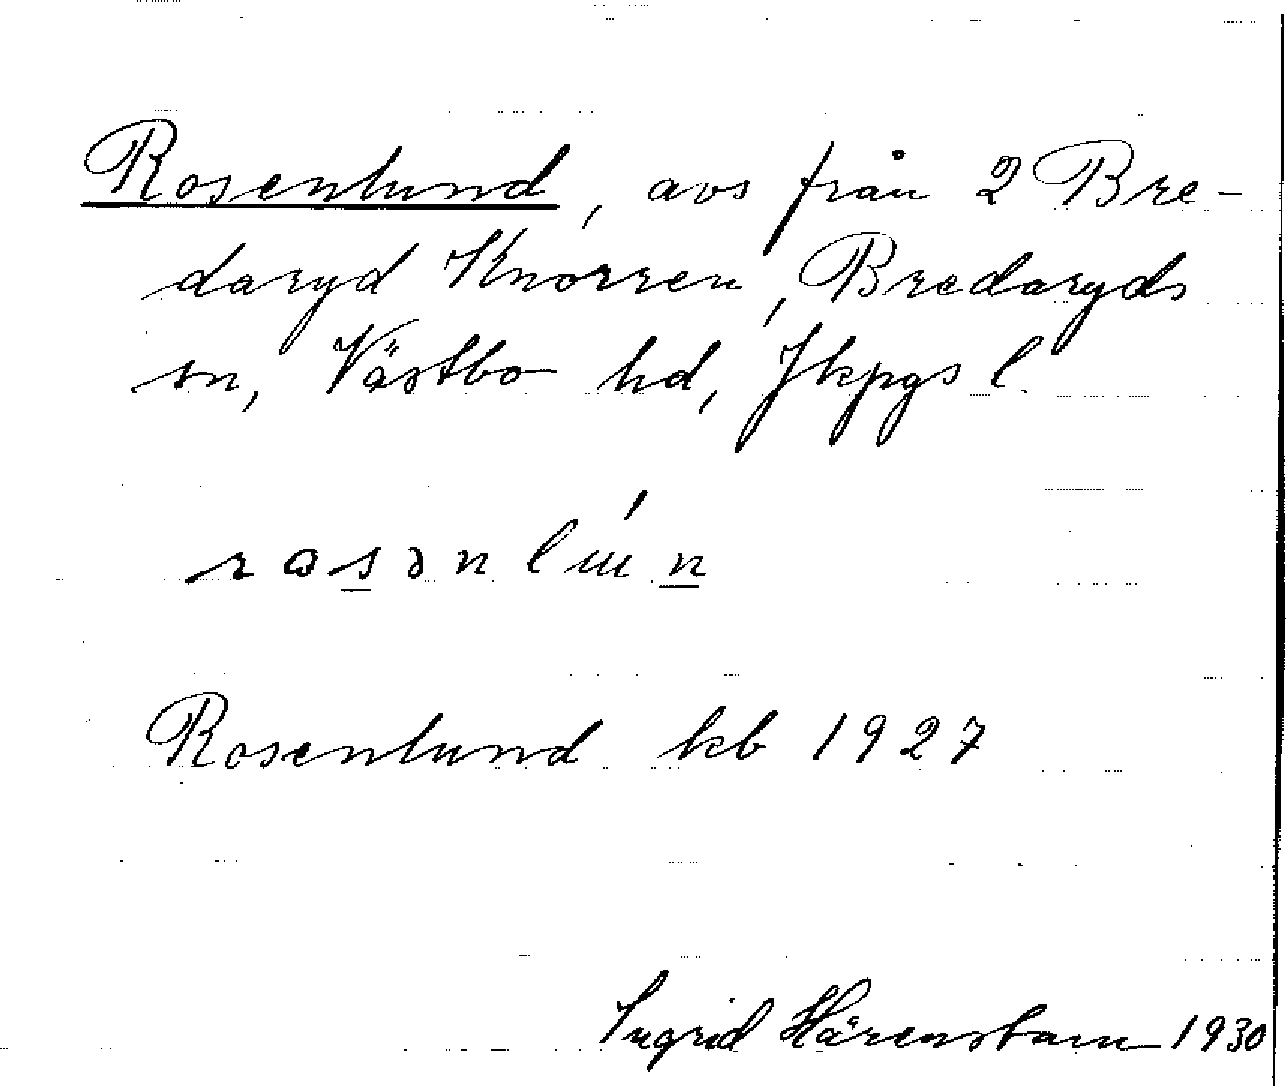 Rosenlund, avs från 2 Bre-
daryd Knorren, Bredaryds
sn, Västbo hd, Jkpgs l.
rosənlɯ́n
Rosenlund kb 1927
Ingrid Härenstam 1930